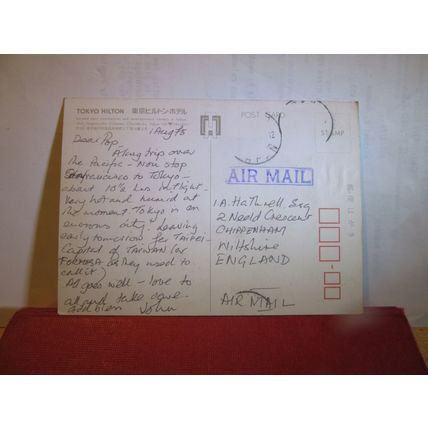 TOKYO HILTON 東京ヒルトンホテル
POST CARD
STAMP
1 Aug 75
Dear Pop,
A long trip over
the Pacific - Non stop
San Francisco to Tokyo -
about 10½ hrs in flight.
Very hot and humid at
the moment. Tokyo is an
enormous city. Leaving
early tomorrow for TAIPEI -
Capital of TAIWAN (or
FORMOSA as they used to
call it)
All goes well - love to
all and take care -
God bless John
AIR MAIL
A. Hathwell, Esq
2 Neeld Crescent
CHIPPENHAM
Wiltshire
ENGLAND
AIR MAIL
郵便はがき